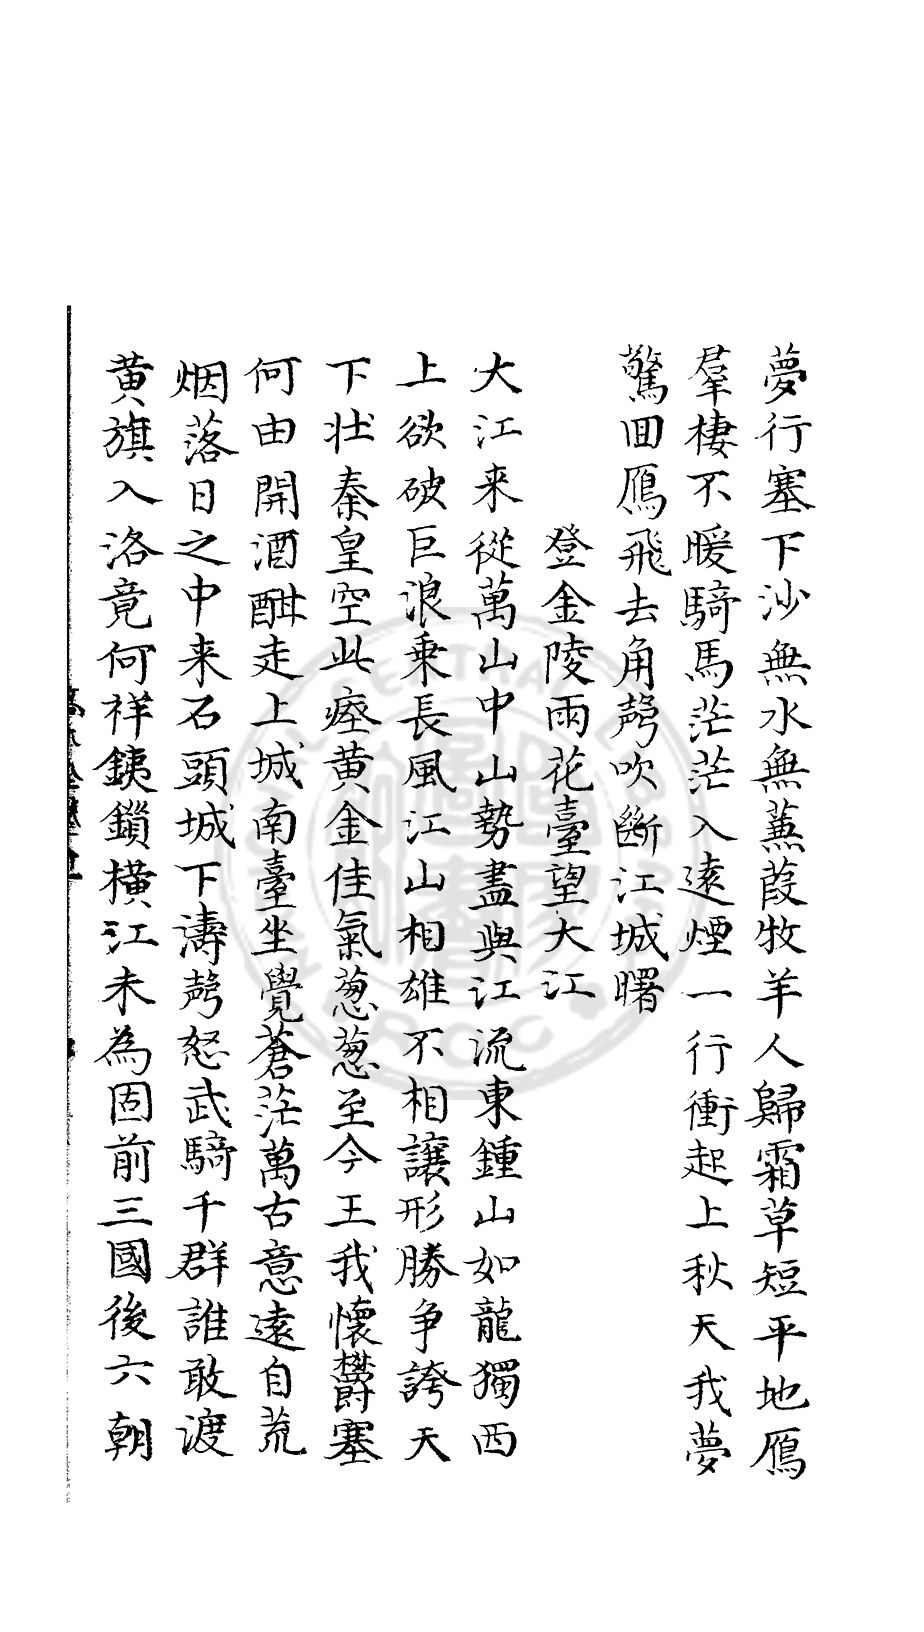 夢行塞下沙無水無蒹葭牧羊人歸霜草短平地鴈
羣棲不暖騎馬茫茫入遠煙一行衝起上秋天我夢
驚回鴈飛去角聲吹斷江城曙
登金陵雨花臺望大江
大江来從萬山中山勢盡與江流東鍾山如龍獨西
上欲破巨浪乗長風江山相雄不相讓形勝争誇天
下壮秦皇空此瘞黄金佳氣葱葱至今王我懷欝塞
何由開酒酣走上城南臺坐覺蒼茫萬古意遠自荒
烟落日之中来石頭城下濤聲怒武騎千群誰敢渡
黄旗入洛竟何祥銕鎖横江未為固前三國後六朝